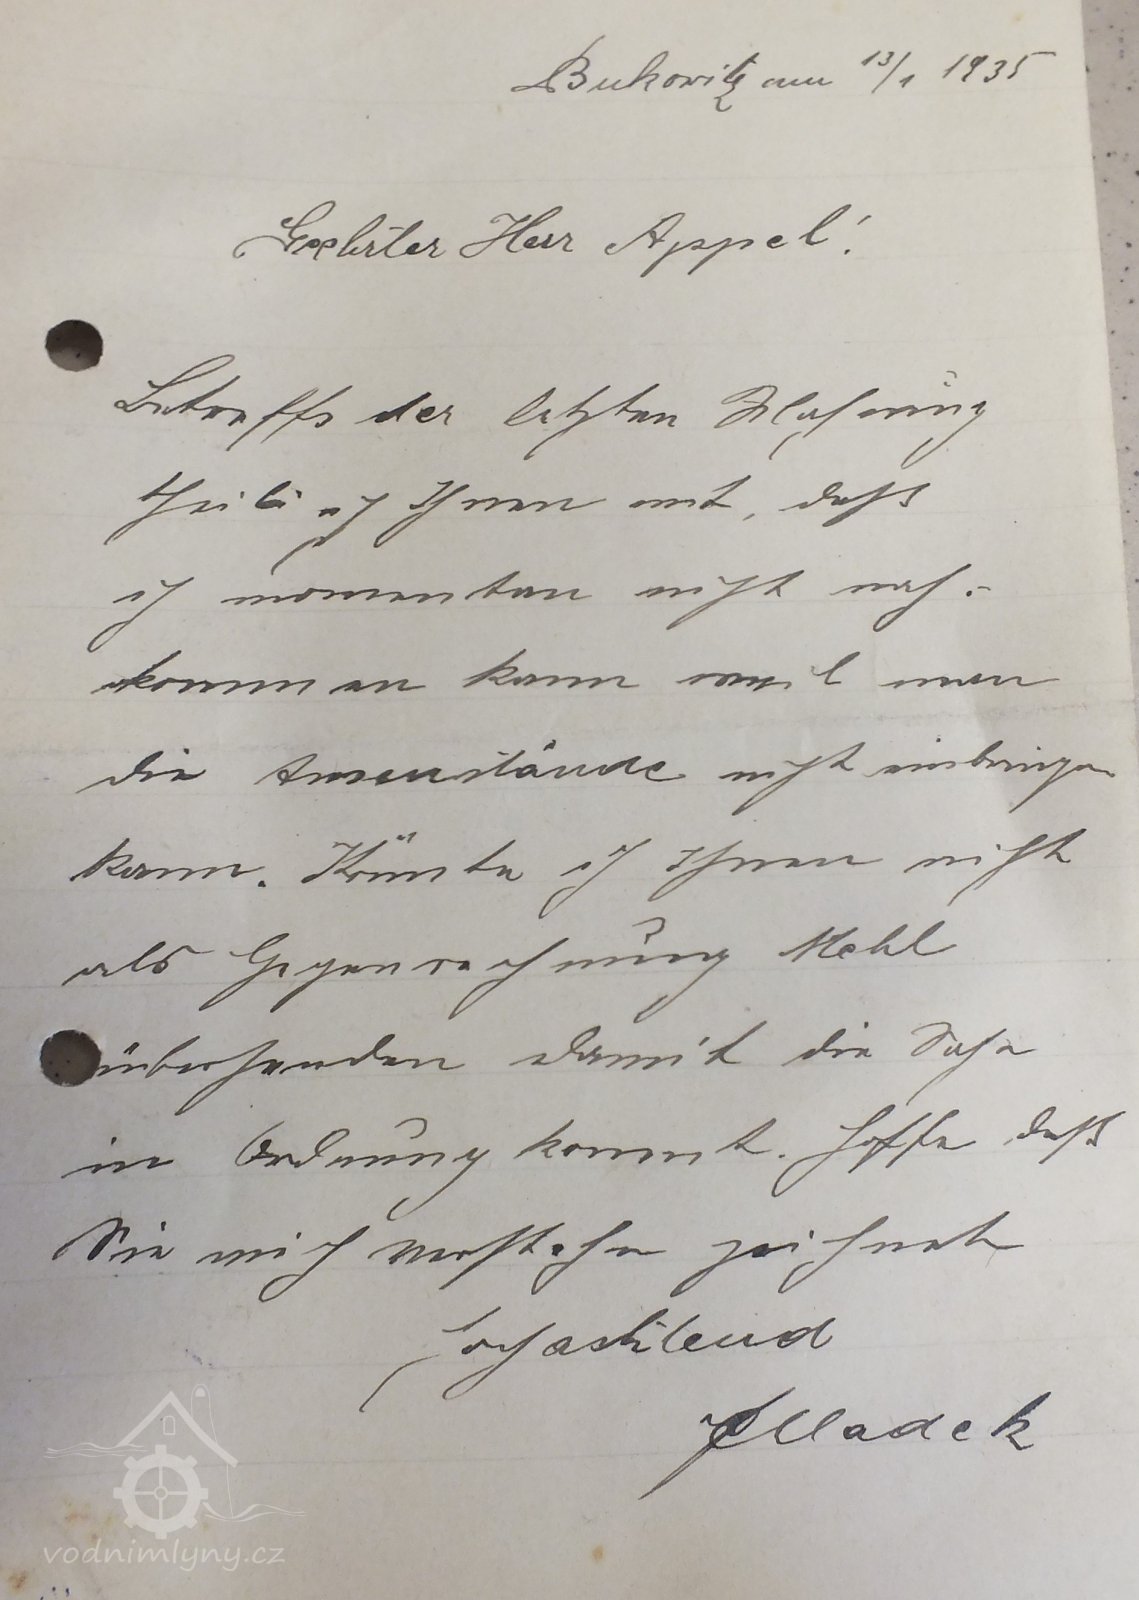 Bukowitz am 13/1 1935
Geehrter Herr Appel!
Betreffs der letzten Mahnung
theile ich Ihnen mit, daß
ich momentan nicht nach-
kommen kann weil man
die Aussenstände nicht einbringen
kann. Könnte ich Ihnen nicht
als Gegenrechnung Mehl
übersenden damit die Sache
in Ordnung kommt. Hoffe daß
Sie mich verstehen zeichnet
hochachtend
Mladek
vodnimlyny.cz